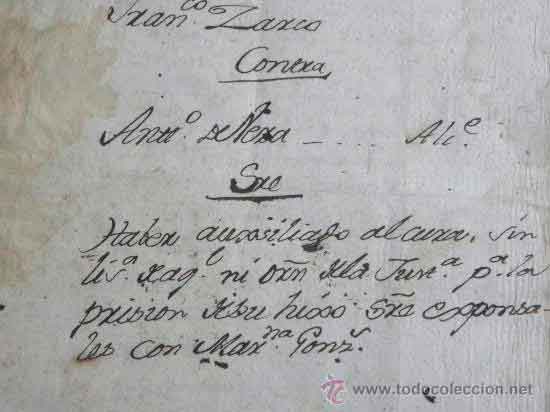 Fran.co Zarco
Contra
Ant.o de Neza — . . . . Alc.e
Sre
Haber auxsiliado al cura, sin
lis.a de aq.l ni orñ de la Jus.a p.a la
prision de su hixo sre esponsa-
les con Mar.na Gonz.
todocoleccion
www.todocoleccion.net